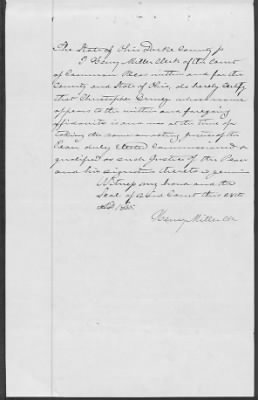 The State of Ohio Darke County ss
I Henry Miller Clerk of the Court
of Common Pleas within and for the
County and State of Ohio, do hereby Certify
that Christopher whose name
appears to the within and foregoing
affidavits is and was at the time of
taking the same an acting Justice of the
Peace duly Elected Commissioned &
qualified as such Justice of the Peace
and his signature thereto is genuine
Witness my hand and the
Seal of said Court this
Henry Miller Clk